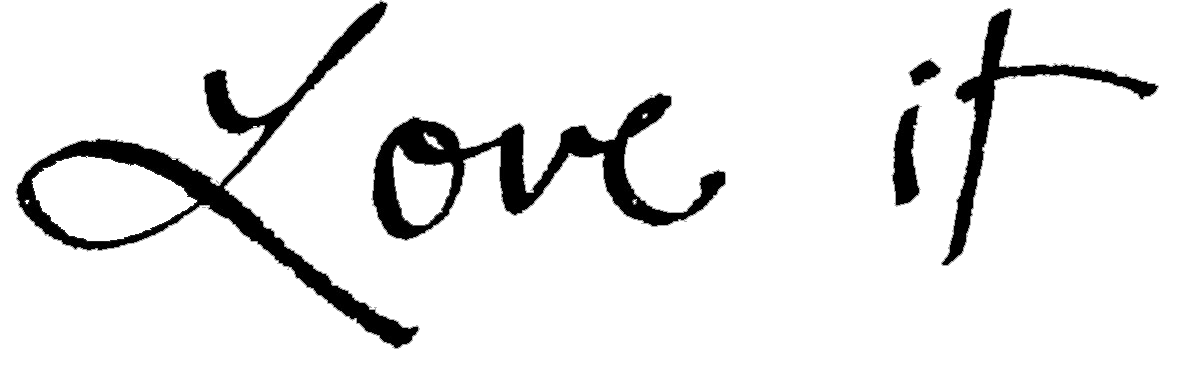 Love it